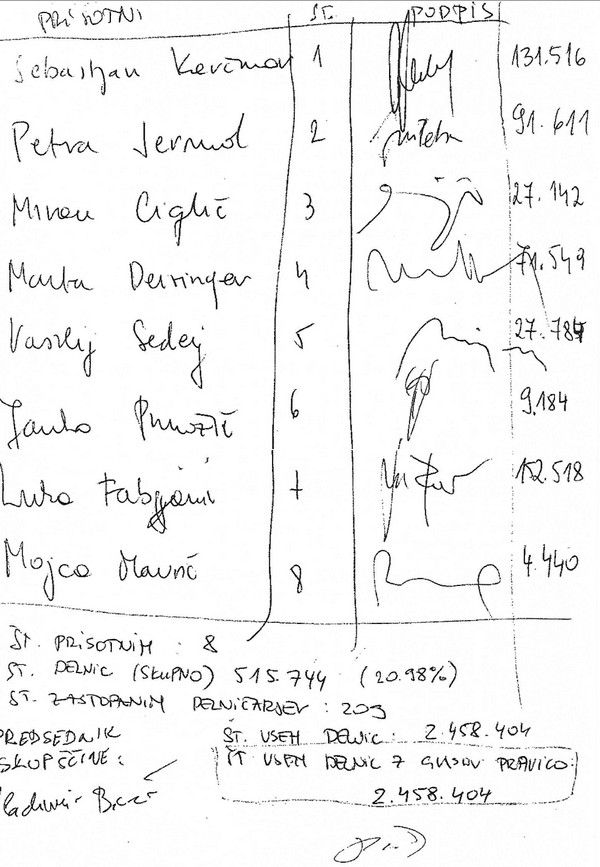 PRISOTNI ŠT. PODPIS
Sebastjan 1 131.516
Petra Jermol 2 91.611
Miran Ciglič 3 27.142
Marta Deisinger 4 71.549
Vasilij Sedej 5 27.784
Janko 6 9.184
Luka Fabjani 7 152.518
Mojca Mavrič 8 4.440
ŠT. PRISOTNIH : 8
ŠT. DELNIC (SKUPNO) 515.744 (20.98%)
ŠT. ZASTOPANIH DELNIČARJEV : 209
PREDSEDNIK
SKUPŠČINE:
ŠT. VSEH DELNIC: 2.458.404
ŠT VSEH DELNIC Z GLASOV. PRAVICO:
2.458.404